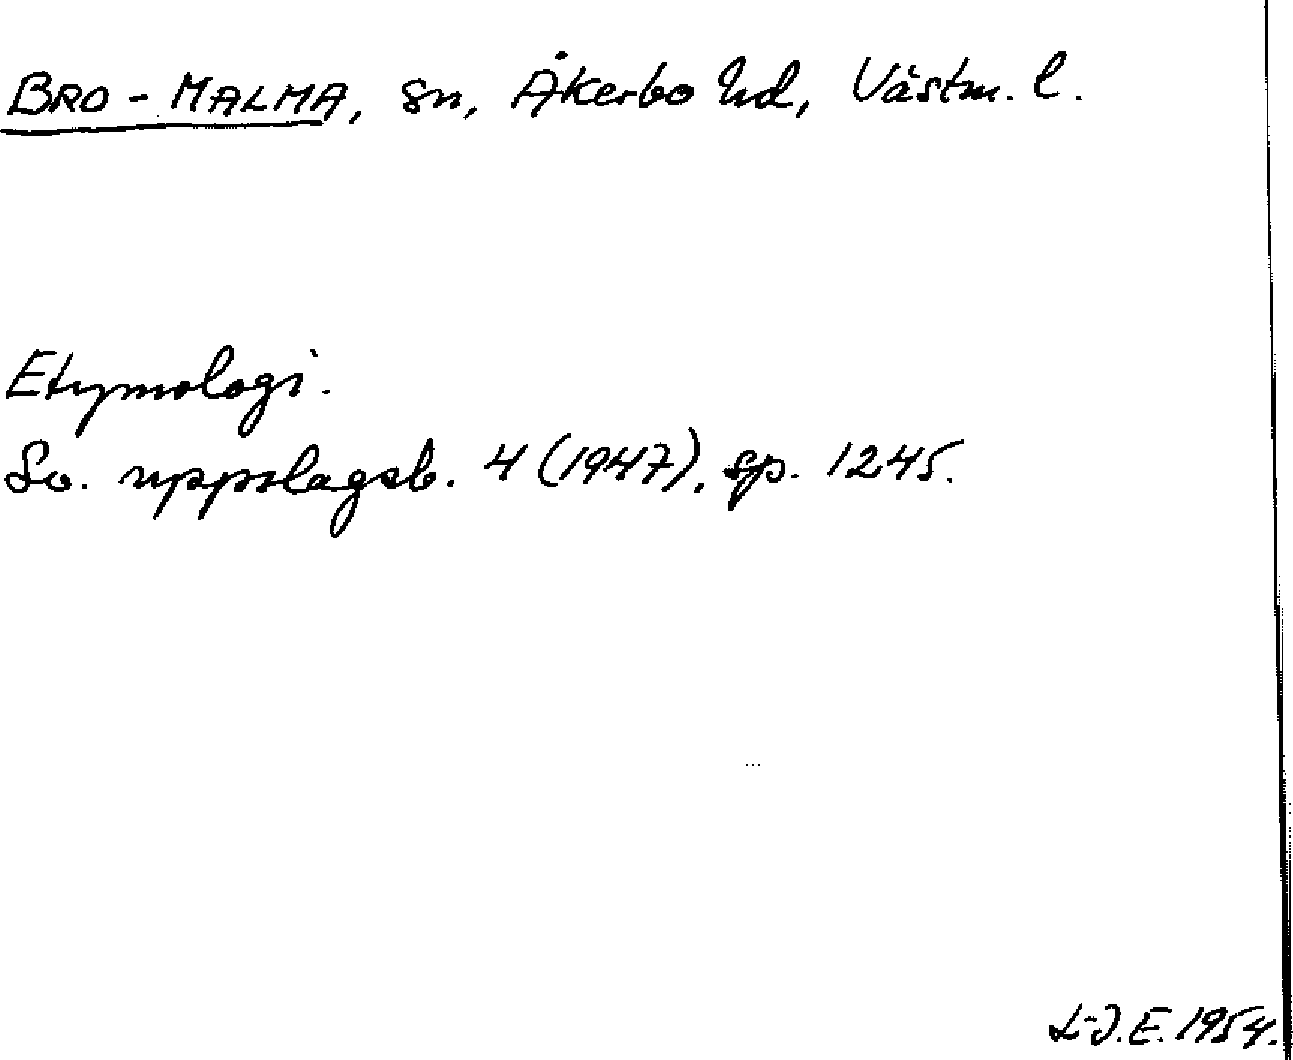 BRO-MALMA, sn, Åkerbo hd, Västm. l.
Etymologi.
Sv. uppslagsb. 4 (1947), sp. 1245.
L-J.E. 1954.